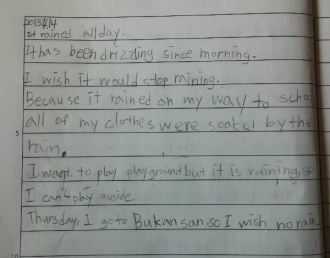 2015.4.14
It rained all day.
It has been drizzling since morning.
I wish it would stop raining.
Because it rained on my way to school
all of my clothes were soaked by the
rain.
5
I want to play playground but it is raining, so
I can't play ouside
Thursday, I go to Bukansan. so I wish no rain.